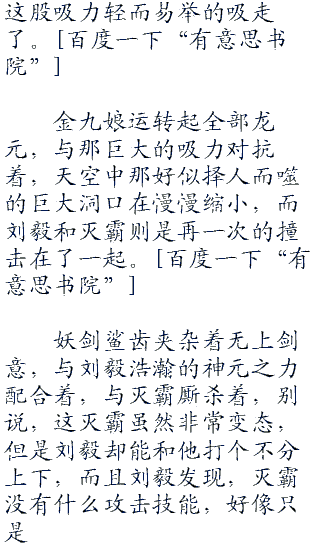 这股吸力轻而易举的吸走
了。[百度一下“有意思书
院”]
金九娘运转起全部龙
元，与那巨大的吸力对抗
着，天空中那好似择人而噬
的巨大洞口在慢慢缩小，而
刘毅和灭霸则是再一次的撞
击在了一起。[百度一下“有
意思书院”]
妖剑鲨齿夹杂着无上剑
意，与刘毅浩瀚的神元之力
配合着，与灭霸厮杀着，别
说，这灭霸虽然非常变态，
但是刘毅却能和他打个不分
上下，而且刘毅发现，灭霸
没有什么攻击技能，好像只
是